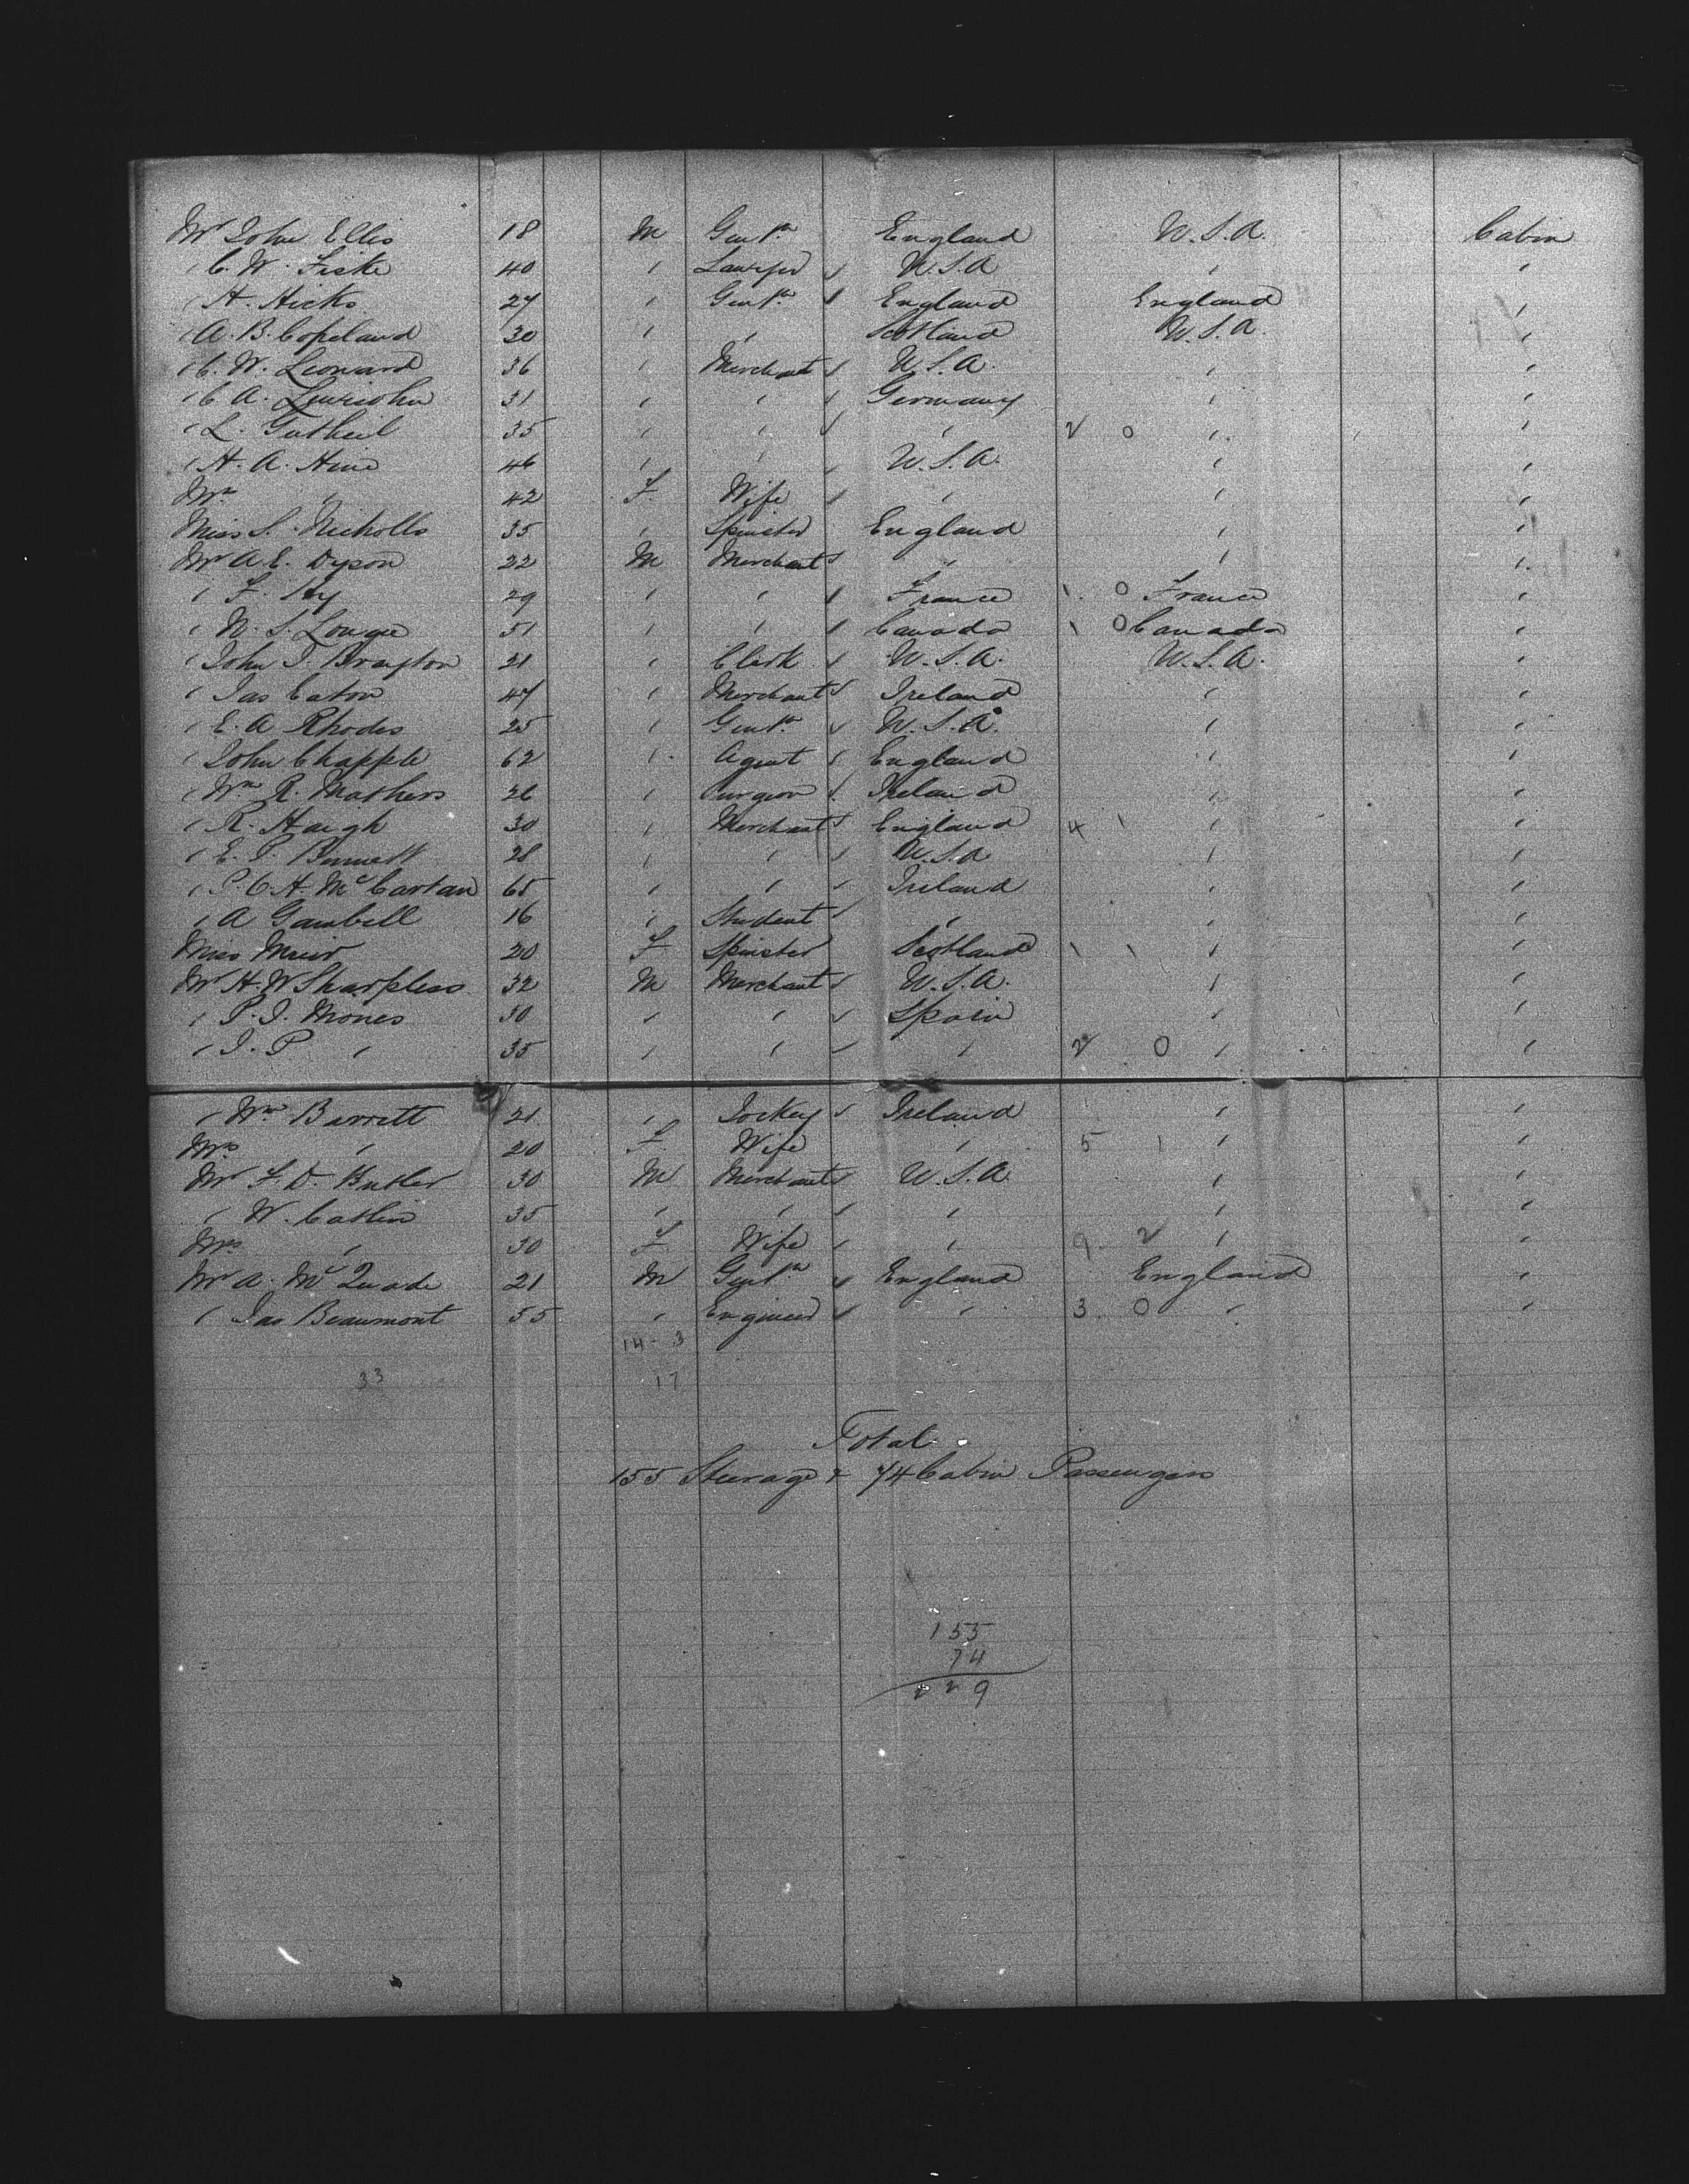 Mr John Ellis 18 M Gentn England U.S.A. Cabin
" C. W. Fiske 40 " Lawyer " U.S.A. " "
" H. Hicks 27 " Gentn " England England "
" A. B. Copeland 30 " " Scotland U.S.A. "
" C. W. Leonard 36 " Merchant " U.S.A. " "
" C A. Lewisohn 31 " " " Germany " "
" L. Gutheil 35 " " " " 2 0 " "
" H. A. Hine 46 " " " U.S.A. " "
Mrs " 42 F. Wife " " " "
Miss S. Nicholls 35 " Spinster England " "
Mr A. E. Dyson 22 M Merchant " " " "
" F. Hy 29 " " " France 1. 0 France "
" W. S. Lougee 51 " " " Canada 1 0 Canada "
" John T. Brayton 21 " Clerk " U.S.A. U.S.A. "
" Jas Eaton 47 " Merchant " Ireland " "
" E. A Rhodes 25 " Gentn " U.S.A. " "
" John Chapple 62 " Agent " England " "
" Wm R. Mathers 26 " Surgeon " Ireland " "
" R. Haigh 30 " Merchant " England 4 1 " "
" E. P. Bennett 28 " " " U.S.A " "
" P. C. H. McCartan 65 " " " Ireland " "
" A Gambell 16 " Student " " " "
Miss Muir 20 F Spinster Scotland 1 1 " "
Mr H. W Sharpless 32 M Merchant " U.S.A. " "
" P. J. Mones 30 " " " Spain " "
" J. P " 35 " " " " 2 0 " "
" Wm Barrett 21 " Jockey " Ireland " "
Mrs " 20 F. Wife " 5 1 " "
Mr F. D. Butler 30 M Merchant " U.S.A. " "
" W. Catlin 35 " " " " " "
Mrs " 30 F. Wife " " 9 2 " "
Mr A. McQuade 21 M Gentn " England England "
" Jas Beaumont 55 " Engineer " " 3. 0 " "
14 - 3
33 17
Total
155 Steerage & 74 Cabin Passengers
155
74
229